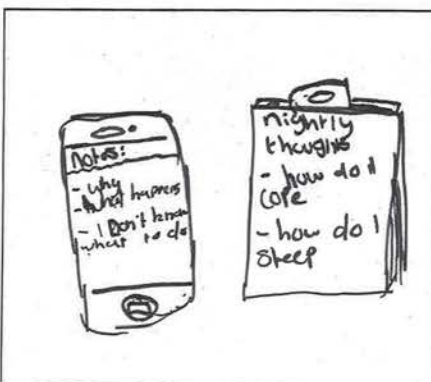 notes:
- why
- what happens
- I Don't know
what to do
nightly
thoughts
- how do I
cope
- how do I
sleep